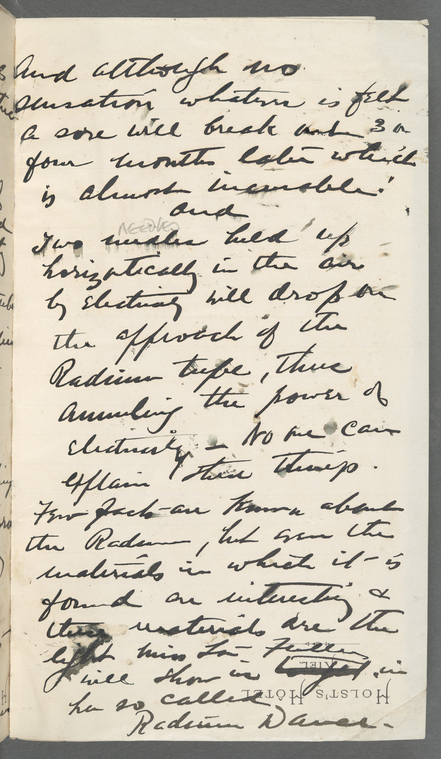 And although no
sensation whatever is felt
a sore will break out 3 or
four months later which
is almost incurable!
and
NEEDLES
Two needles held up
horizotically in the air
by Electricity will drop on
the approach of the
Radium tube, thus
annuling the power of
Electricity – No one can
explain these things.
Few facts are known about
the Radium, but even the
materials in which it is
found are interesting &
these materials are the
light Miss Loïe Fuller
will show in in
her so called
Radium Dance –
HOLST'S HÔTEL
KIEL